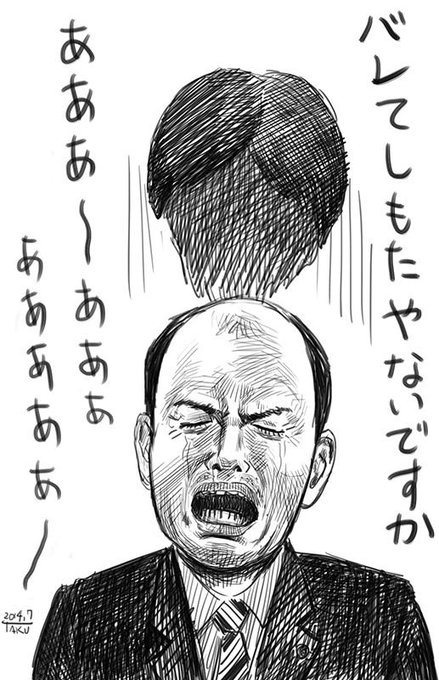 バレてしもたやないですか
あああ〜あああ
あああああ〜
2014.7
TAKU